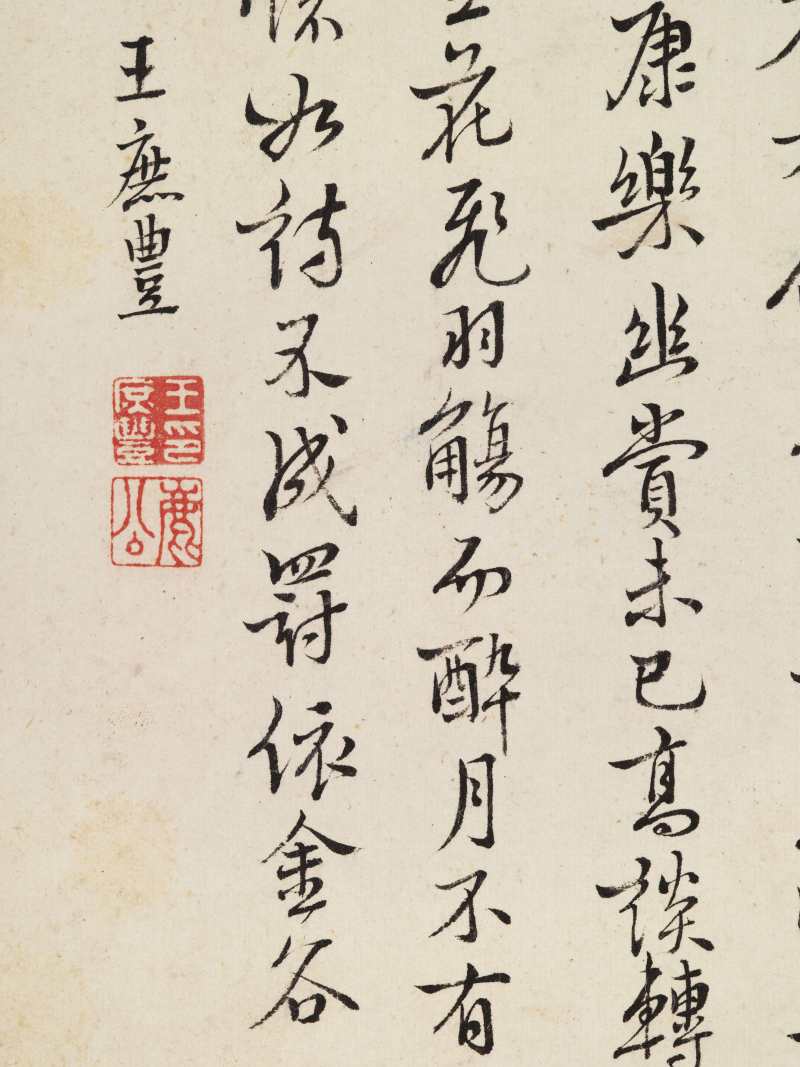 康樂幽賞未已高談轉
花飛羽觴而醉月不有
如詩不成罰依金谷
王庶豐
王印庶豐